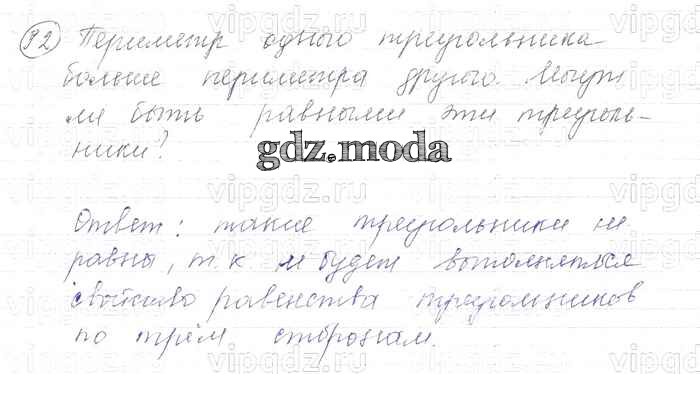 92) Периметр одного треугольника
больше периметра другого. Могут
ли быть равными эти треуголь-
ники?
gdz.moda
Ответ: такие треугольники не
равны, т.к. не будет выполняться
свойство равенства треугольников
по трём сторонам.
vipgdz.ru